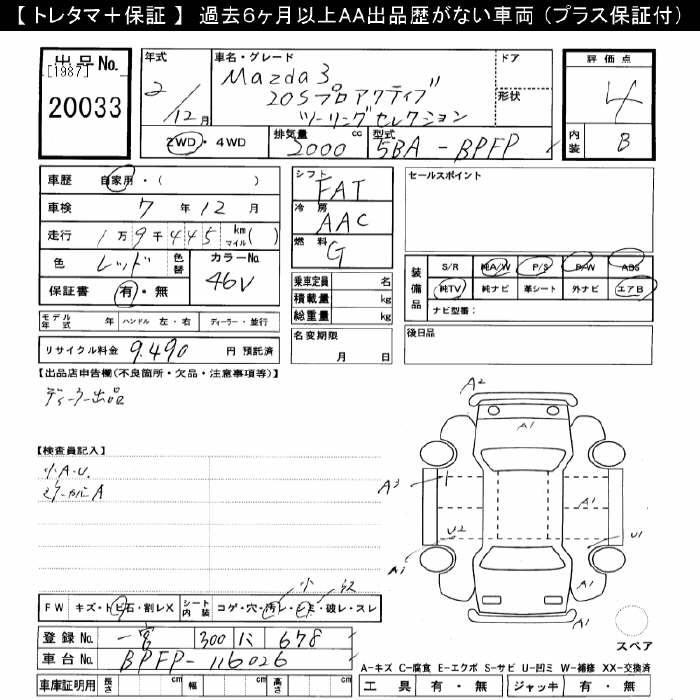 【 トレタマ＋保証 】 過去６ヶ月以上AA出品歴がない車両（プラス保証付）
出品No.
[1987]
20033
年式
2/12月
車名・グレード
Mazda3
20Sプロアクティブ
ツーリングセレクション
ドア
形状
2WD・4WD
排気量
2000 cc
型式
5BA-BPFP
評価点
4
内装
B
車歴 自家用・( )
車検 7年12月
走行 1万9千445 km マイル( )
色 レッド 色替
カラーNo.
46V
保証書 有・無
モデル年式 年 ハンドル 左・右 ディーラー・並行
リサイクル料金 9,490 円 預託済
シフト
FAT
冷房
AAC
燃料
G
乗車定員 名
積載量 kg
総重量 kg
名変期限
月 日
セールスポイント
装備品
S/R 純A/W P/S P/W ABS
純TV 純ナビ 革シート 外ナビ エアB
ナビ型番:
後日品
【出品店申告欄(不良箇所・欠品・注意事項等)】
ディーラー出品
【検査員記入】
小A.U.
ミラーカバーA
小
FW キズ・トビ石・割レX シート内装 コゲ・穴・汚レ・シミ・破レ・スレ
登録No. 一宮 300 に 678
車台No. BPFP-116026
車庫証明用 長さ cm 幅 cm 高さ cm
A2
A1
A3
A1
U2
U1
A1
A1
スペア
A-キズ C-腐食 E-エクボ S-サビ U-凹ミ W-補修 XX-交換済
工具 有・無 ジャッキ 有・無